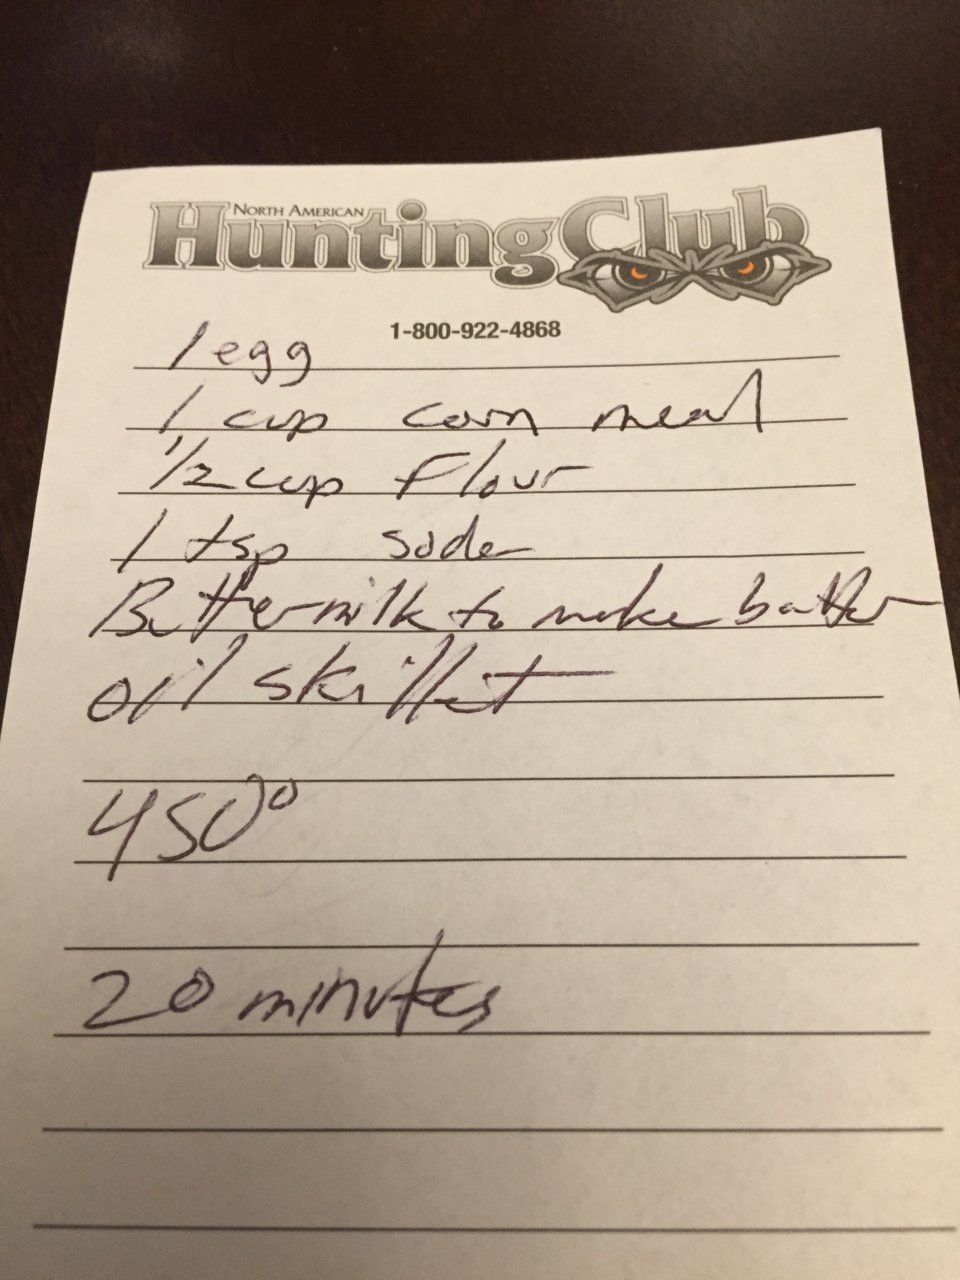 NORTH AMERICAN
Hunting Club
1-800-922-4868
1 egg
1 cup corn meal
1/2 cup flour
1 tsp soda
Buttermilk to make batter
oil skillet
450°
20 minutes